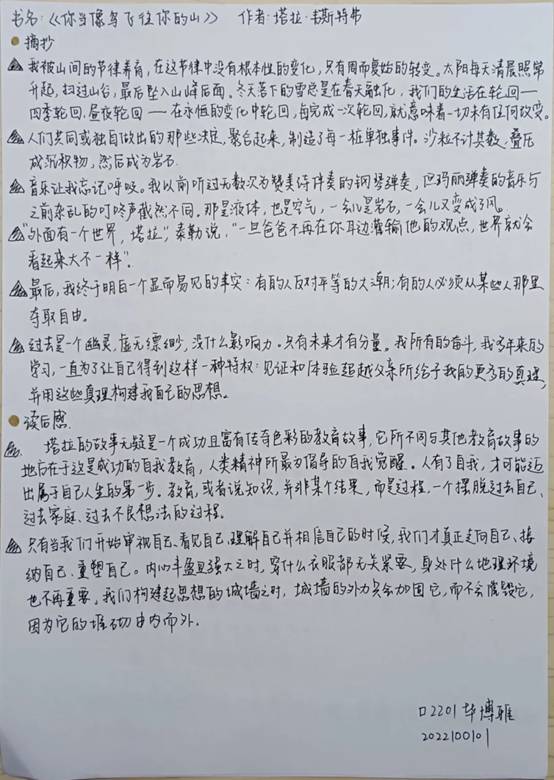 书名:《你当像鸟飞往你的山》 作者:塔拉·韦斯特弗
摘抄
我被山间的节律养育,在这节律中没有根本性的变化,只有周而复始的转变。太阳每天清晨照常
升起,扫过山谷,最后坠入山峰后面。冬天落下的雪总是在春天融化,我们的生活在轮回——
四季轮回,昼夜轮回——在永恒的变化中轮回,每完成一次轮回,就意味着一切未有任何改变。
人们共同或独自做出的那些决定,聚合起来,制造了每一桩单独事件。沙粒不计其数,叠压
成沉积物,然后成为岩石
音乐让我忘记呼吸。我以前听过无数次为赞美诗伴奏的钢琴弹奏,但玛丽弹奏的音乐与
之前杂乱的叮咚声截然不同。那是液体,也是空气,一会儿是岩石,一会儿又变成了风。
"外面有一个世界,塔拉,"泰勒说,"一旦爸爸不再在你耳边灌输他的观点,世界就会
看起来大不一样"。
最后,我终于明白一个显而易见的事实:有的人反对平等的大潮;有的人必须从某些人那里
夺取自由。
过去是一个幽灵,虚无缥缈,没什么影响力。只有未来才有分量。我所有的奋斗,我多年来的
学习,一直为了让自己得到这样一种特权:见证和体验超越父亲所给予我的更多的真理,
并用这些真理构建我自己的思想。
读后感
塔拉的故事无疑是一个成功且富有传奇色彩的教育故事,它所不同与其他教育故事的
地方在于这是成功的自我教育,人类精神所最为倡导的自我觉醒。人有了自我,才可能迈
出属于自己人生的第一步。教育,或者说知识,并非某个结果,而是过程,一个摆脱过去自己、
过去家庭、过去不良想法的过程。
只有当我们开始审视自己、看见自己、理解自己并相信自己的时候,我们才真正走向自己、接
纳自己、重塑自己。内心丰盈且强大之时,穿什么衣服都无关紧要,身处什么地理环境
也不再重要。我们构建起思想的城墙之时,城墙的外力只会加固它,而不会摧毁它,
因为它的堆砌由内而外。
口2201 华博雅
20221001